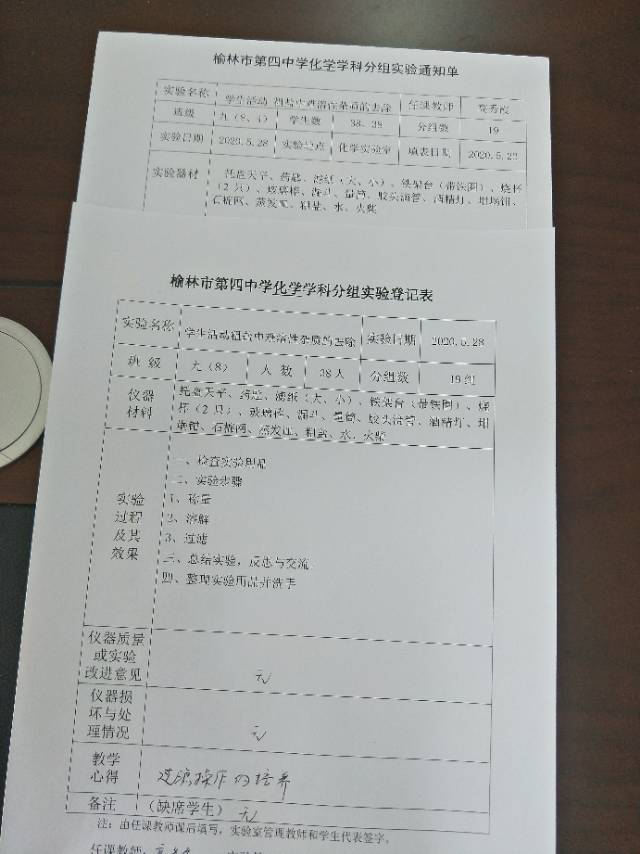 榆林市第四中学化学学科分组实验通知单
实验名称 学生活动 粗盐中难溶性杂质的去除 任课教师
班级 九(8、4) 学生数 38、38 分组数 19
实验日期 2020.5.28 实验地点 化学实验室 填表日期 2020.5.23
实验器材 托盘天平、药匙、滤纸(大、小)、铁架台(带铁圈)、烧杯
(2只)、玻璃棒、漏斗、量筒、胶头滴管、酒精灯、坩埚钳、
石棉网、蒸发皿、粗盐、水、火柴
榆林市第四中学化学学科分组实验登记表
实验名称 学生活动粗盐中难溶性杂质的去除 实验日期 2020.5.28
班级 九(8) 人数 38人 分组数 19组
仪器材料 托盘天平、药匙、滤纸(大、小)、铁架台(带铁圈)、烧
杯(2只)、玻璃棒、漏斗、量筒、胶头滴管、酒精灯、坩
埚钳、石棉网、蒸发皿、粗盐、水、火柴
实验过程及其效果
一、检查实验用品
二、实验步骤
1、称量
2、溶解
3、过滤
三、总结实验,反思与交流
四、整理实验用品并洗手
仪器质量或实验改进意见 无
仪器损坏与处理情况 无
教学心得 过滤操作的培养
备注 (缺席学生) 无
注:由任课教师课后填写,实验室管理教师和学生代表签字。
任课教师: